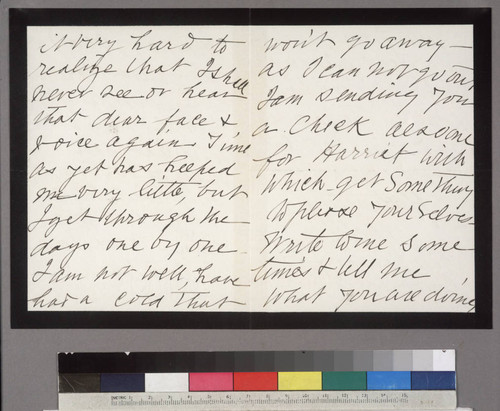 it very hard to
realize that I shall
never see or hear
that dear face &
voice again. Time
as yet has helped
me very little, but
I get through the
days one by one
I am not well, have
had a cold that
wont go away—
as I can not go out
I am sending you
a check also one
for Harriet with
which get Something
to please yourselves
Write to me some
times & tell me
what you are doing